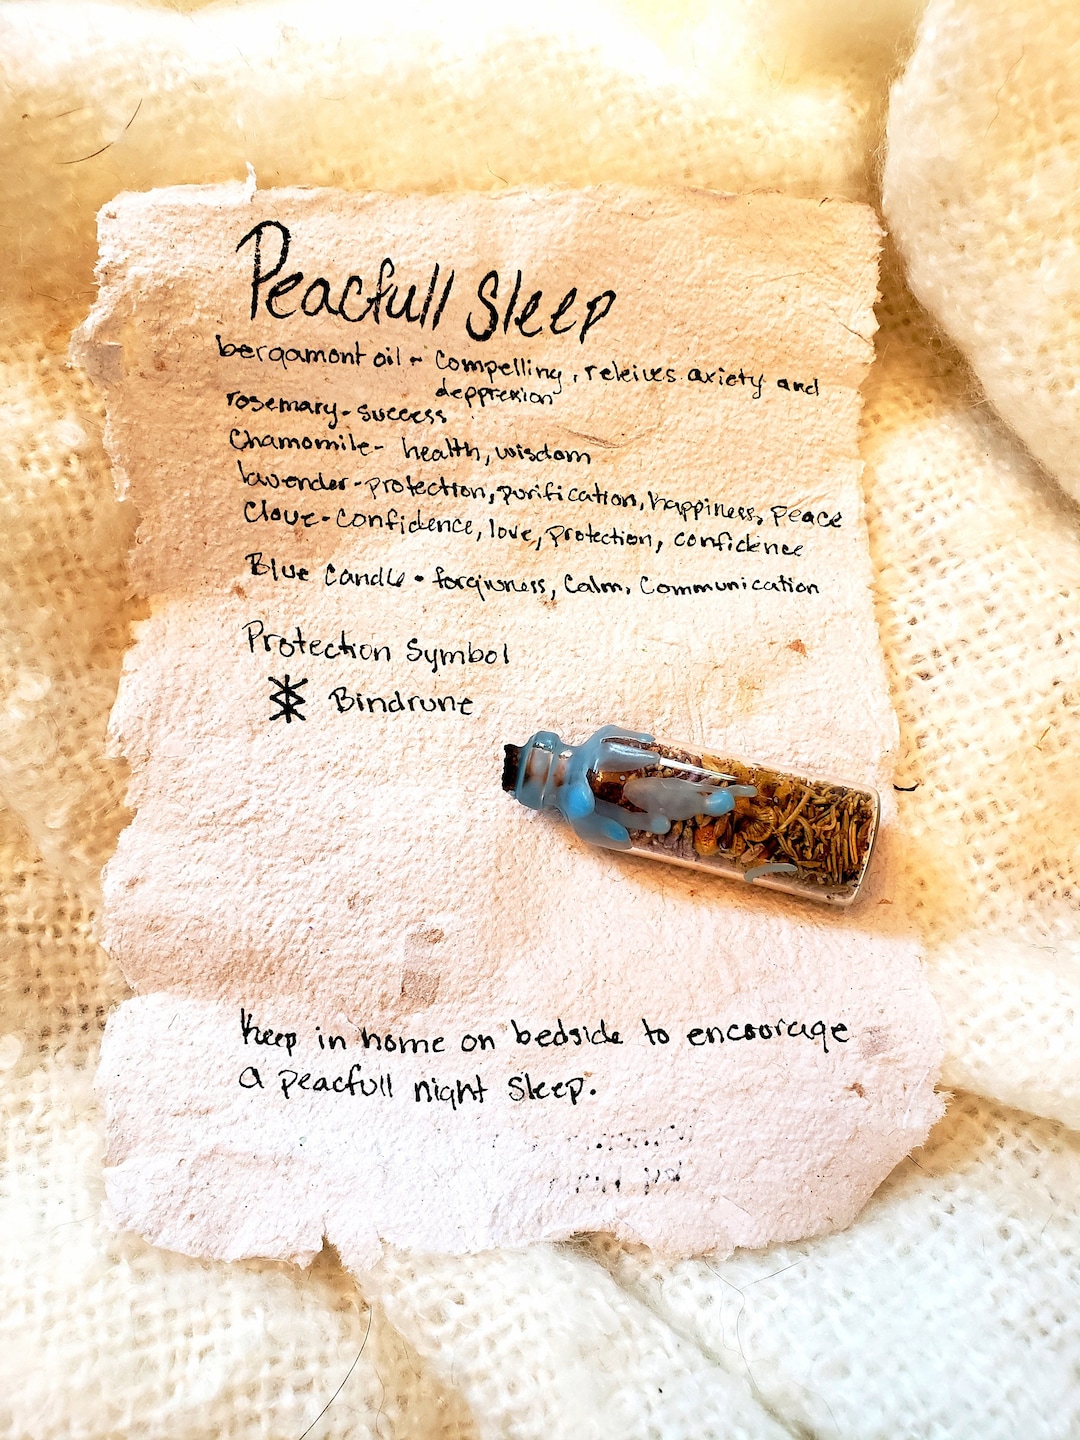 Peacfull Sleep
bergamont oil - compelling, releives axiety and
deppresion
rosemary - success
Chamomile - health, wisdom
lavender - protection, purification, happiness, peace
Clove - confidence, love, protection, confidence
Blue Candle - forgivness, Calm, Communication
Protection Symbol
Bindrune
Keep in home on bedside to encourage
a peacfull night sleep.